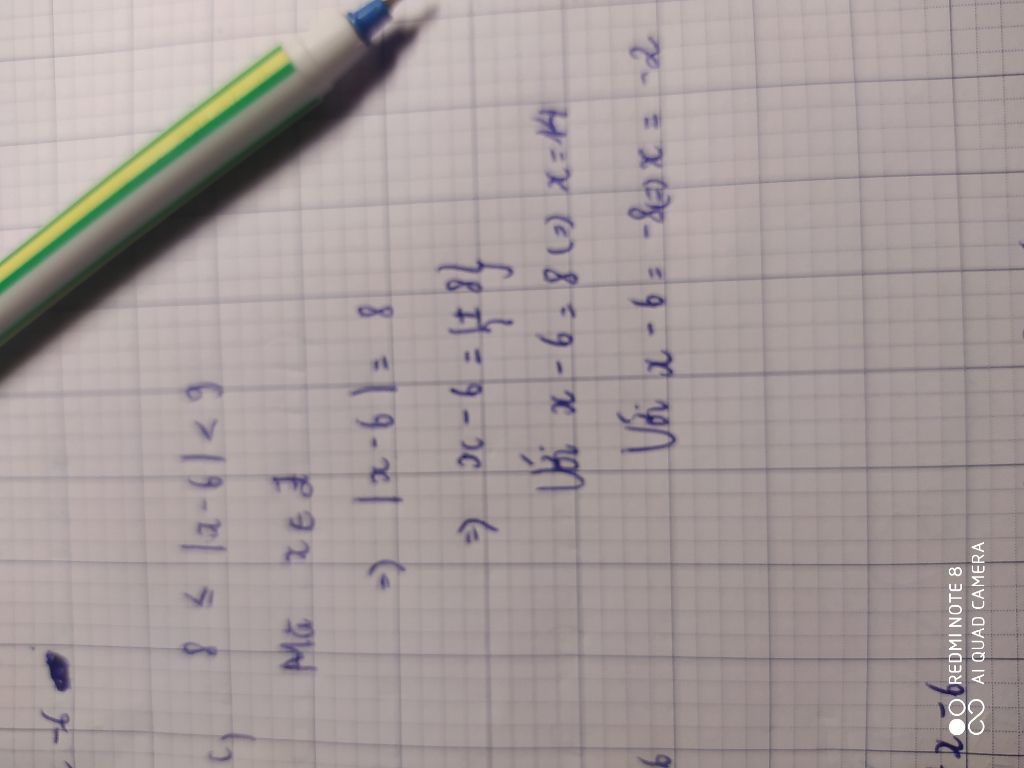 -6
c) 8 ≤ |x - 6| < 9
Mà x ∈ Z
=) |x - 6| = 8
=) x - 6 = {± 8}
Với x - 6 = 8 (=) x = 14
Với x - 6 = -8 (=) x = -2
6
x - 6
REDMI NOTE 8
AI QUAD CAMERA